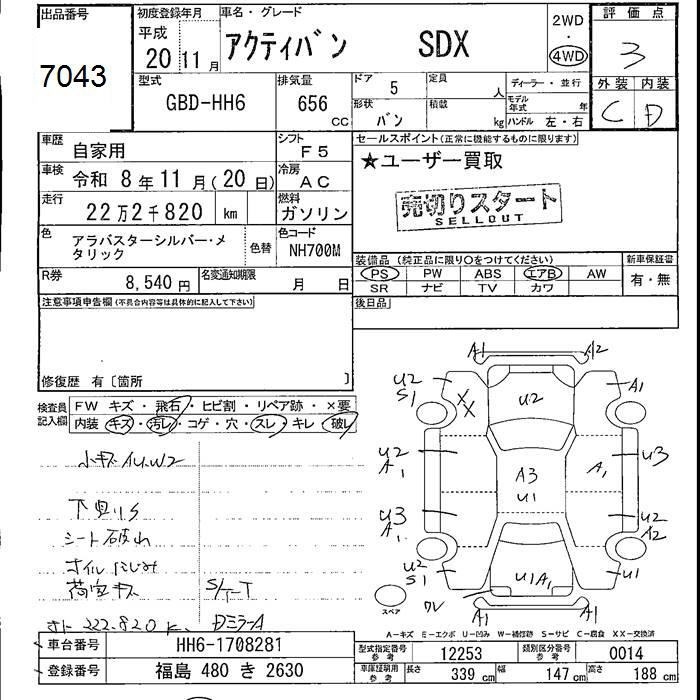 出品番号
7043
初度登録年月
平成
20 11月
車名・グレード
アクティバン SDX
2WD
・
4WD
評価点
3
外装 内装
C D
型式
GBD-HH6
排気量
656 CC
ドア 5
定員 人
形状 バン
積載 kg
ディーラー・並行
モデル年式 年
ハンドル 左・右
車歴 自家用
シフト F5
車検 令和 8年11月(20日)
冷房 AC
走行 22万2千820 km
燃料 ガソリン
色 アラバスターシルバー・メタリック
色替
色コード NH700M
R券 8,540円
名変通知期限 月 日
セールスポイント(正常に機能するものに限ります)
★ユーザー買取
売切りスタート
SELLOUT
装備品(純正品に限り○をつけてください)
PS PW ABS エアB AW
SR ナビ TV カワ
新車保証書
有・無
後日品
注意事項申告欄(不具合内容等は具体的に記入して下さい)
修復歴 有〔箇所 〕
検査員記入欄
FW キズ・飛石・ヒビ割・リペア跡・×要
内装 キズ・汚レ・コゲ・穴・スレ・キレ・破レ
小キズAU.W2
下回りS
シート破れ
オイルにじみ
荷室キズ
S/T-T
DミラーA
A1 A2
U2 S1
XX
U2
A1
U2 A1
U3
A3 U1
A1
U3 A1
U2 A2
U2 S1
U1A1
U1
スペア
A1 A1
A-キズ E-エクボ U-凹み W-補修跡 S-サビ C-腐食 XX-交換済
車台番号 HH6-1708281
登録番号 福島 480 き 2630
型式指定番号 参考 12253
類別区分番号 参考 0014
車庫証明用 参考 長さ 339 cm 幅 147 cm 高さ 188 cm